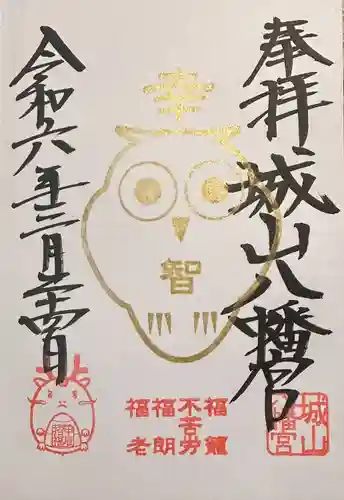 奉拝
城山八幡宮
智
令和六年三月二十四日
福籠
不苦労
福朗
福老
城山
八幡宮